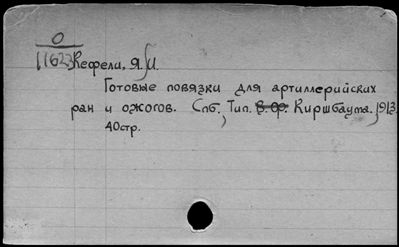 0
1162 Кефели, Я. И.
Готовые повязки для артиллерийских
ран и ожогов. Спб, Тип. В. Ф. Киршбаума. 1913.
40стр.